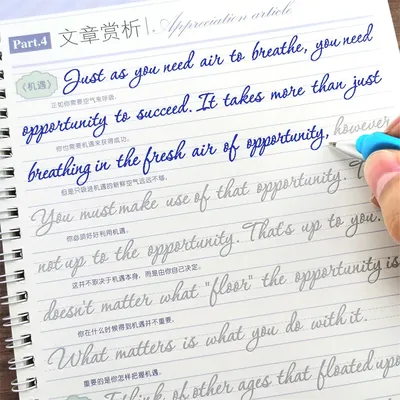 Part.4 文章赏析 Appreciation article
《机遇》 Just as you need air to breathe, you need
正如你需要空气来呼吸,
opportunity to succeed. It takes more than just
你也需要机遇来获得成功。
breathing in the fresh air of opportunity, however
但是只吸进机遇的新鲜空气远远不够。
You must make use of that opportunity. T
你必须好好利用机遇。
not up to the opportunity. That's up to you.
这并不取决于机遇本身,而是由你自己决定。
doesn't matter what "floor" the opportunity is
你在什么时候得到机遇并不重要。
What matters is what you do with it.
重要的是你怎样把握机遇。
Think of other ages that floated upo